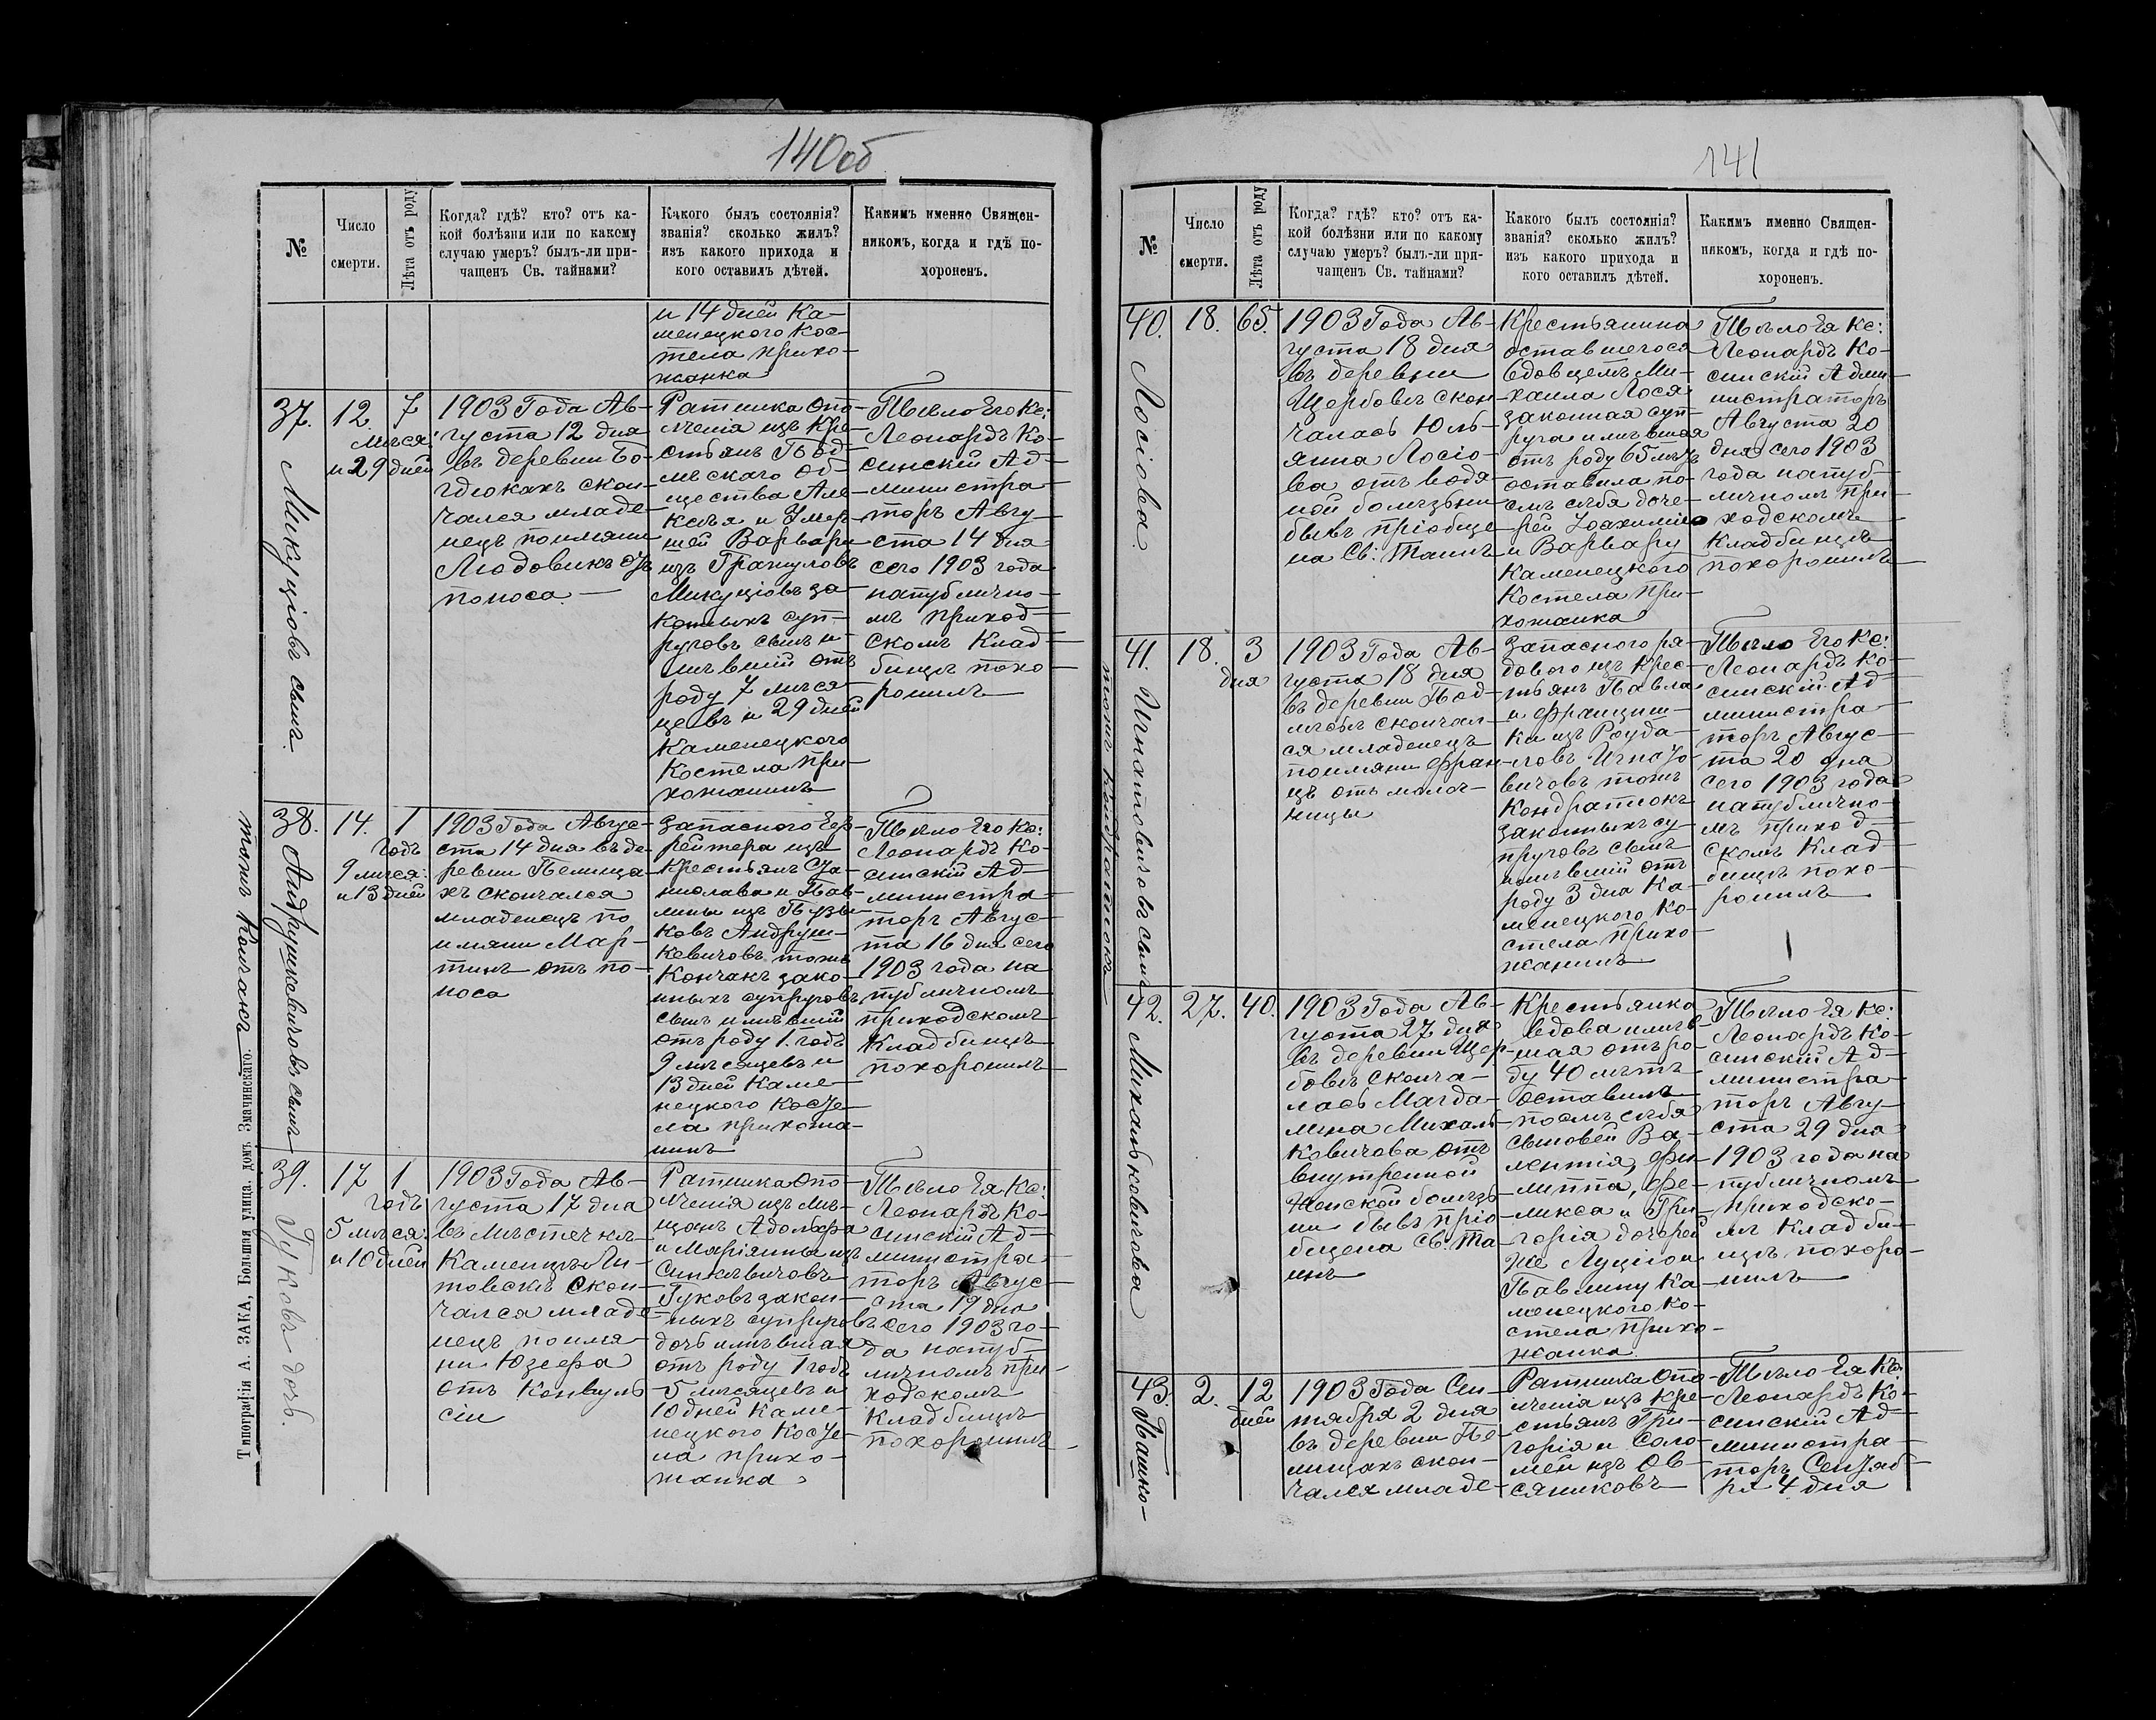 140об
№
Число
смерти.
Лѣта отъ роду
Когда? гдѣ? кто? отъ ка-
кой болѣзни или по какому
случаю умеръ? былъ-ли при-
чащенъ Св. тайнами?
Какого былъ состоянія?
званія? сколько жилъ?
изъ какого прихода и
кого оставилъ дѣтей.
Какимъ именно Священ-
никомъ, когда и гдѣ по-
хороненъ.
и 14 дней Ка-
менецкого Кос-
тела прихо-
жанка
37.
Микуціовъ сынъ.
12.
7
мѣся:
и 29 дней
1903 Года Ав-
густа 12 дня
въ деревни Бо-
гдюкахъ скон-
чался младе-
нецъ поимяни
Людовикъ отъ
поноса.
Ратника Опо-
лченія изъ Кре-
стьянъ Под-
лѣскаго Об-
щества Але-
ксѣя и Умер-
шей Варвары
изъ
Микуціовъ за-
конныхъ суп-
руговъ сынъ и-
мѣвшій отъ
роду 7 мѣся-
цевъ и 29 дней
Каменецкого
Костела при-
хожанинъ
Тѣло Его Кс:
Леонардъ Ко-
синскій Ад-
министра-
торъ Авгу-
ста 14 дня
сего 1903 года
напублично-
мъ приход-
скомъ Клад-
бищѣ похо-
ронилъ
38.
Андрушкевичовъ сынъ
тожъ Кончакъ.
14.
1
годъ
9 мѣся:
и 13 дней
1903 Года Авгус-
ста 14 дня въ де-
ревни Пелища-
хъ скончался
младенецъ по
имяни Мар-
тинъ отъ по-
носа
Запасного Еф-
рейтера изъ
Крестьянъ Ста-
нислава и Пав-
лины изъ Пузы-
ковъ Андруш-
кевичовъ тожъ
Кончакъ зако-
нныхъ супруговъ
сынъ имѣвшій
отъ роду 1 годъ
9 мѣсяцевъ и
13 дней Каме-
нецкого Косте-
ла прихожа-
нинъ
Тѣло Его Кс:
Леонардъ Ко-
синскій Ад-
министра-
торъ Авгус-
та 16 дня сего
1903 года на
публичномъ
приходскомъ
Кладбищѣ
похоронилъ
39.
Гуковъ дочь.
17
1
годъ
5 мѣся:
и 10 дней
1903 Года Ав-
густа 17 дня
въ Мѣстечкѣ
Каменцѣ Ли-
товскѣ Скон-
чался младе-
нецъ поимя-
ни Юзефа
отъ Конвуль
сіи
Ратника Опо-
лченія изъ Мѣ-
щанъ Адольфа
и Маріянны изъ
Синкевичовъ
Гуковъ закон-
ныхъ супруговъ
дочь имѣвшая
отъ роду 1 годъ
5 мѣсяцевъ и
10 дней Каме-
нецкого Косте-
ла прихо-
жанка
Тѣло Ея Кс:
Леонардъ Ко-
синскій Ад-
министра-
торъ Авгус-
ста 19 дня
сего 1903 го-
да напуб-
личномъ при-
ходскомъ
Кладбищѣ
похоронилъ
Типографія А. ЗАКА, Большая улица. домъ Змачинскаго.
141
№
Число
смерти.
Лѣта отъ роду
Когда? гдѣ? кто? отъ ка-
кой болѣзни или по какому
случаю умеръ? былъ-ли при-
чащенъ Св. тайнами?
Какого былъ состоянія?
званія? сколько жилъ?
изъ какого прихода и
кого оставилъ дѣтей.
Какимъ именно Священ-
никомъ, когда и гдѣ по-
хороненъ.
40.
Лосіова.
18.
65.
1903 Года Ав-
густа 18 дня
въ деревни
Щербовѣ скон-
чалась Юль-
янна Лосіо-
ва отъ водя-
ной болѣзни
бывъ пріобще
на Св: Таинъ
Крестьянина
оставшегося
вдовцемъ Ми-
хаила Лося
законная суп-
руга имѣвшая
отъ роду 65 лѣтъ
оставила по-
слѣ себя доче-
рей Іоахимію
и Варвару
Каменецкого
Костела при-
хожанка
Тѣло Ея Кс:
Леонардъ Ко-
синскій Адми-
нистраторъ
Августа 20
дня сего 1903
года напуб-
личномъ при-
ходскомъ
Кладбищѣ
похоронилъ
41.
Игнатовичовъ сынъ
тожъ Кондратюкъ
18.
3
дня
1903 Года Ав-
густа 18 дня
въ деревни Под-
скончал-
ся младенецъ
поимяни Фран-
цъ отъ молоч-
ницы
Запасного ря-
дового изъ Крес-
тьянъ Павла
и Францищ-
ки изъ
Игнато-
вичовъ тожъ
Кондратюкъ
законныхъ су-
пруговъ сынъ
имѣвшій отъ
роду 3 дня Ка-
менецкого Ко-
стела прихо-
жанинъ
Тѣло Его Кс:
Леонардъ Ко-
синскій Ад-
министра-
торъ Авгус-
та 20 дня
сего 1903 года
напублично-
мъ приход-
скомъ Клад-
бищѣ похо-
ронилъ
42.
Михальковичова
27.
40.
1903 Года Ав-
густа 27 дня
въ деревни Щер-
бовѣ Сконча-
лась Магда-
лина Михаль-
ковичова отъ
внутренной
Женской болѣз-
ни бывъ пріо-
бщена Св. Та-
инъ
Крестьянка
вдова имѣв-
шая отъ ро-
ду 40 лѣтъ
оставила
послѣ себя
сыновей Ва-
лентія, Фи-
липпа, Фе-
ликса и Гри-
горія дочерей
же Луцію и
Павлину Ка-
менецкого Ко-
стела прихо-
жанка.
Тѣло Ея Кс:
Леонардъ Ко-
синскій Ад-
министра-
торъ Авгу-
ста 29 дня
1903 года на
публичномъ
приходско-
мъ Кладби-
щѣ похоро-
нилъ
43.
Пашко-
2.
12
дней
1903 Года Сен-
тября 2 дня
въ деревни Пе-
лищахъ скон-
чался младе-
Ратника Опо-
лченія изъ Кре-
стьянъ Гри-
горія и Соло-
меи изъ Ов-
сяниковъ
Тѣло Ея Кс:
Леонардъ Ко-
синскій Ад-
министра-
торъ Сентяб-
ря 4 дня